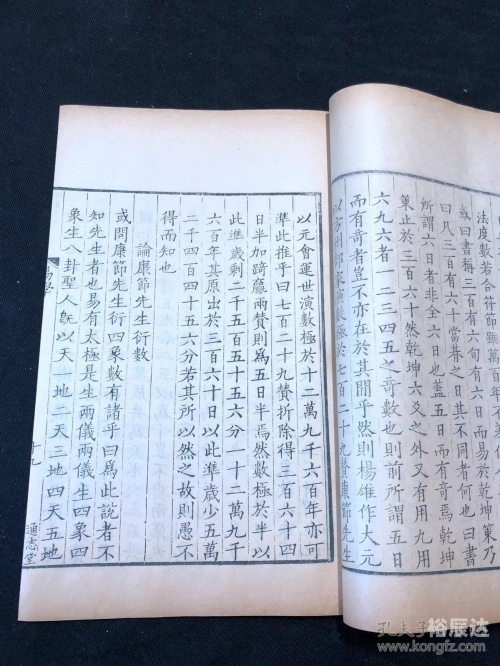 法度數若合符節雖
策乃
或曰書稱三百有六旬有六日而易
曰凡三百有六十當朞之日其不同者何也曰書
所謂六日者非全六日也蓋五日而有奇焉乾坤
策止於三百六十然乾坤六爻之外又有用九用
六九六者一二三四五之奇數也則前所謂五日
而有奇者豈不亦在於其閒乎然則楊雄作大元
以方州部家演數極於七百二十九贊康節先生
以元會運世演數極於十二萬九千六百年亦可
準此推乎曰七百二十九贊折除得三百六十四
日半加踦嬴兩贊則爲五日半焉然數極於半以
此準歲剩二千五百五十五六分一十二萬九千
六百年其原出於三百六十日以此準歲少五萬
二千四百四十五六分若其所以然之故則愚不
得而知也
論康節先生衍數
或問康節先生衍四象數有諸乎曰爲此說者不
知先生者也易有太極是生兩儀兩儀生四象四
象生八卦聖人旣以天一地二天三地四天五地
易學
十九
通志堂
孔夫子
裕辰达
www.kongfz.com